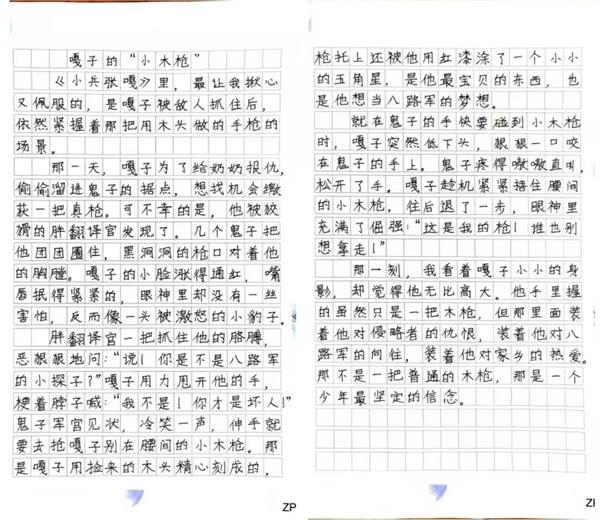 嘎子的“小木枪”
《小兵张嘎》里，最让我揪心
又佩服的，是嘎子被敌人抓住后，
依然紧握着那把用木头做的手枪的
场景。
那一天，嘎子为了给奶奶报仇，
偷偷溜进鬼子的据点，想找机会缴
获一把真枪。可不幸的是，他被狡
猾的胖翻译官发现了。几个鬼子把
他团团圈住，黑洞洞的枪口对着他
的胸膛。嘎子的小脸涨得通红，嘴
唇抿得紧紧的，眼神里却没有一丝
害怕，反而像一头被激怒的小豹子。
胖翻译官一把抓住他的胳膊，
恶狠狠地问：“说！你是不是八路军
的小探子？”嘎子用力甩开他的手，
梗着脖子喊：“我不是！你才是坏人！”
鬼子军官见状，冷笑一声，伸手就
要去抢嘎子别在腰间的小木枪。那
是嘎子用捡来的木头精心刻成的，
ZP
枪托上还被他用红漆涂了一个小小
的五角星，是他最宝贝的东西，也
是他想当八路军的梦想。
就在鬼子的手快要碰到小木枪
时，嘎子突然低下头，狠狠一口咬
在鬼子的手上。鬼子疼得嗷嗷直叫，
松开了手。嘎子趁机紧紧捂住腰间
的小木枪，往后退了一步，眼神里
充满了倔强：“这是我的枪！谁也别
想拿走！”
那一刻，我看着嘎子小小的身
影，却觉得他无比高大。他手里握
的虽然只是一把木枪，但那里面装
着他对侵略者的仇恨，装着他对八
路军的向往，装着他对家乡的热爱。
那不是一把普通的木枪，那是一个
少年最坚定的信念。